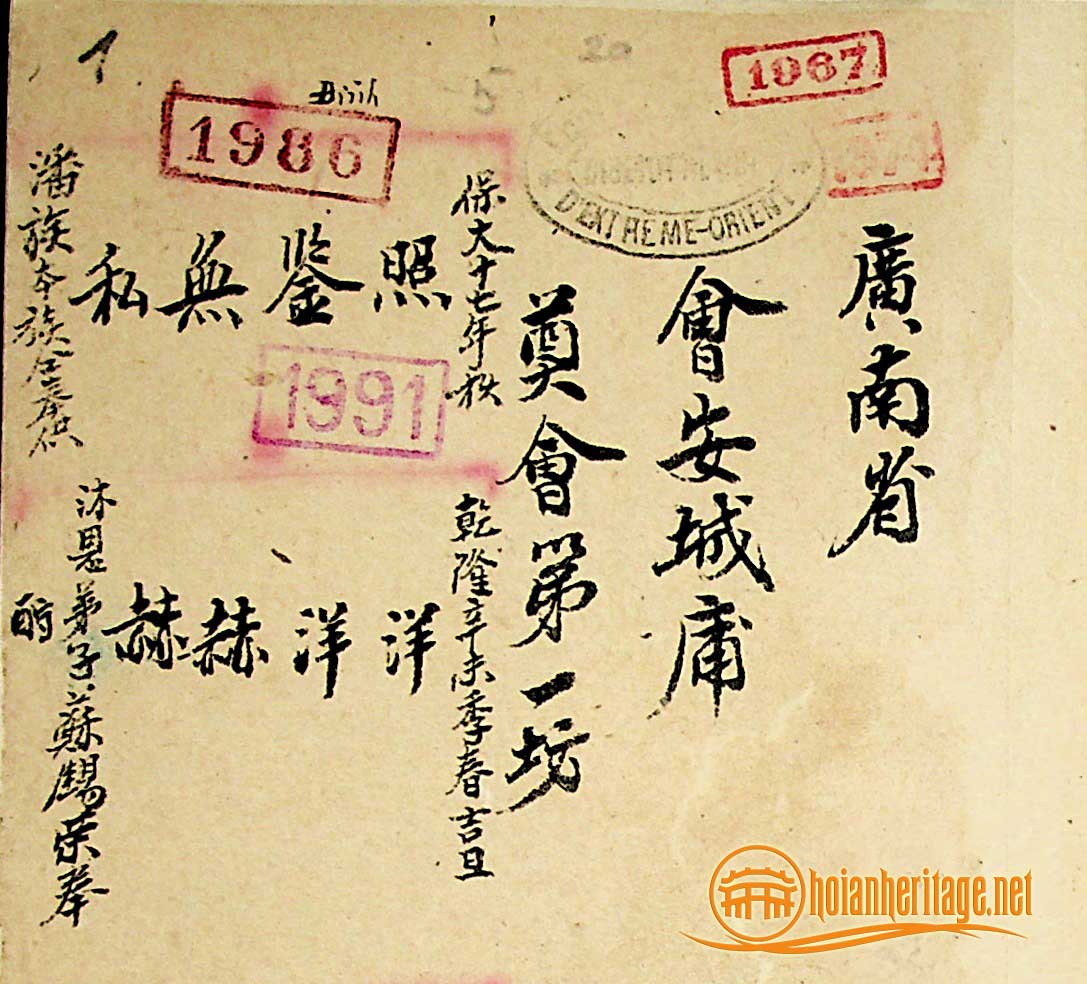 1967
D'EXTREME-ORIENT
20
5
1986
1991
廣南省
會安城庯
奠會第一坊
保大十七年秋
照鑒無私
潘族本族仝奉供
乾隆辛未季春吉旦
洋洋赫赫
沐恩弟子蘇榮奉
酧
hoianheritage.net